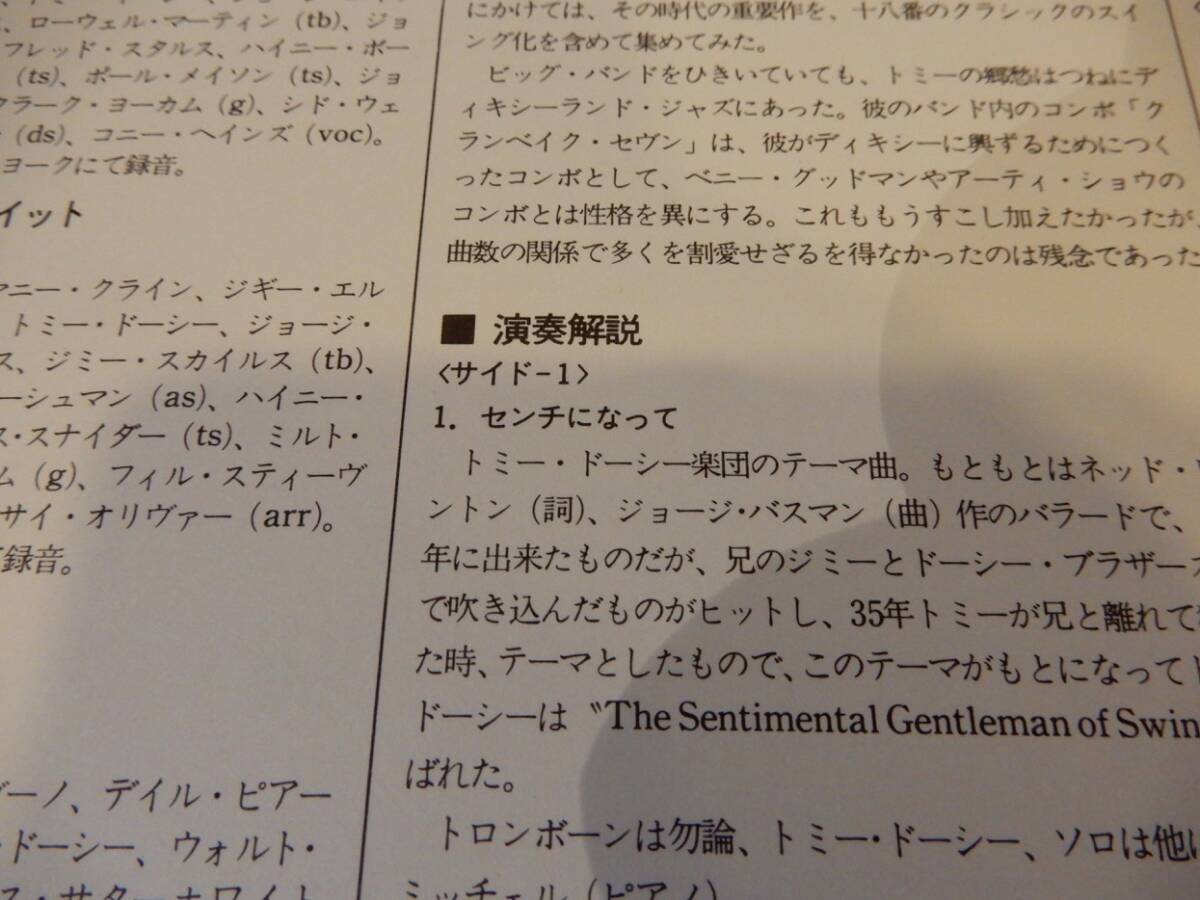 ローウェル・マーティン (tb)、ジョ
フレッド・スタルス、ハイニー・ボー
(ts)、ポール・メイソン (ts)、ジョ
クラーク・ヨーカム (g)、シド・ウェ
(ds)、コニー・ヘインズ (voc)。
ヨークにて録音。
イット
ニー・クライン、ジギー・エル
トミー・ドーシー、ジョージ・
ス、ジミー・スカイルス (tb)、
ーシュマン (as)、ハイニー・
ス・スナイダー (ts)、ミルト・
ム (g)、フィル・スティーヴ
サイ・オリヴァー (arr)。
録音。
ーノ、デイル・ピアー
・ドーシー、ウォルト・
にかけては、その時代の重要作を、十八番のクラシックのスイ
ング化を含めて集めてみた。
ビッグ・バンドをひきいていても、トミーの郷愁はつねにデ
ィキシーランド・ジャズにあった。彼のバンド内のコンボ「ク
ランベイク・セヴン」は、彼がディキシーに興ずるためにつく
ったコンボとして、ベニー・グッドマンやアーティ・ショウの
コンボとは性格を異にする。これももうすこし加えたかったが、
曲数の関係で多くを割愛せざるを得なかったのは残念であった
■ 演奏解説
〈サイド-1〉
1. センチになって
トミー・ドーシー楽団のテーマ曲。もともとはネッド・
ントン (詞)、ジョージ・バスマン (曲) 作のバラードで、
年に出来たものだが、兄のジミーとドーシー・ブラザーズ
で吹き込んだものがヒットし、35年トミーが兄と離れて
た時、テーマとしたもので、このテーマがもとになって
ドーシーは〝The Sentimental Gentleman of Swin
ばれた。
トロンボーンは勿論、トミー・ドーシー、ソロは他に
ミッチェル (ピアノ)